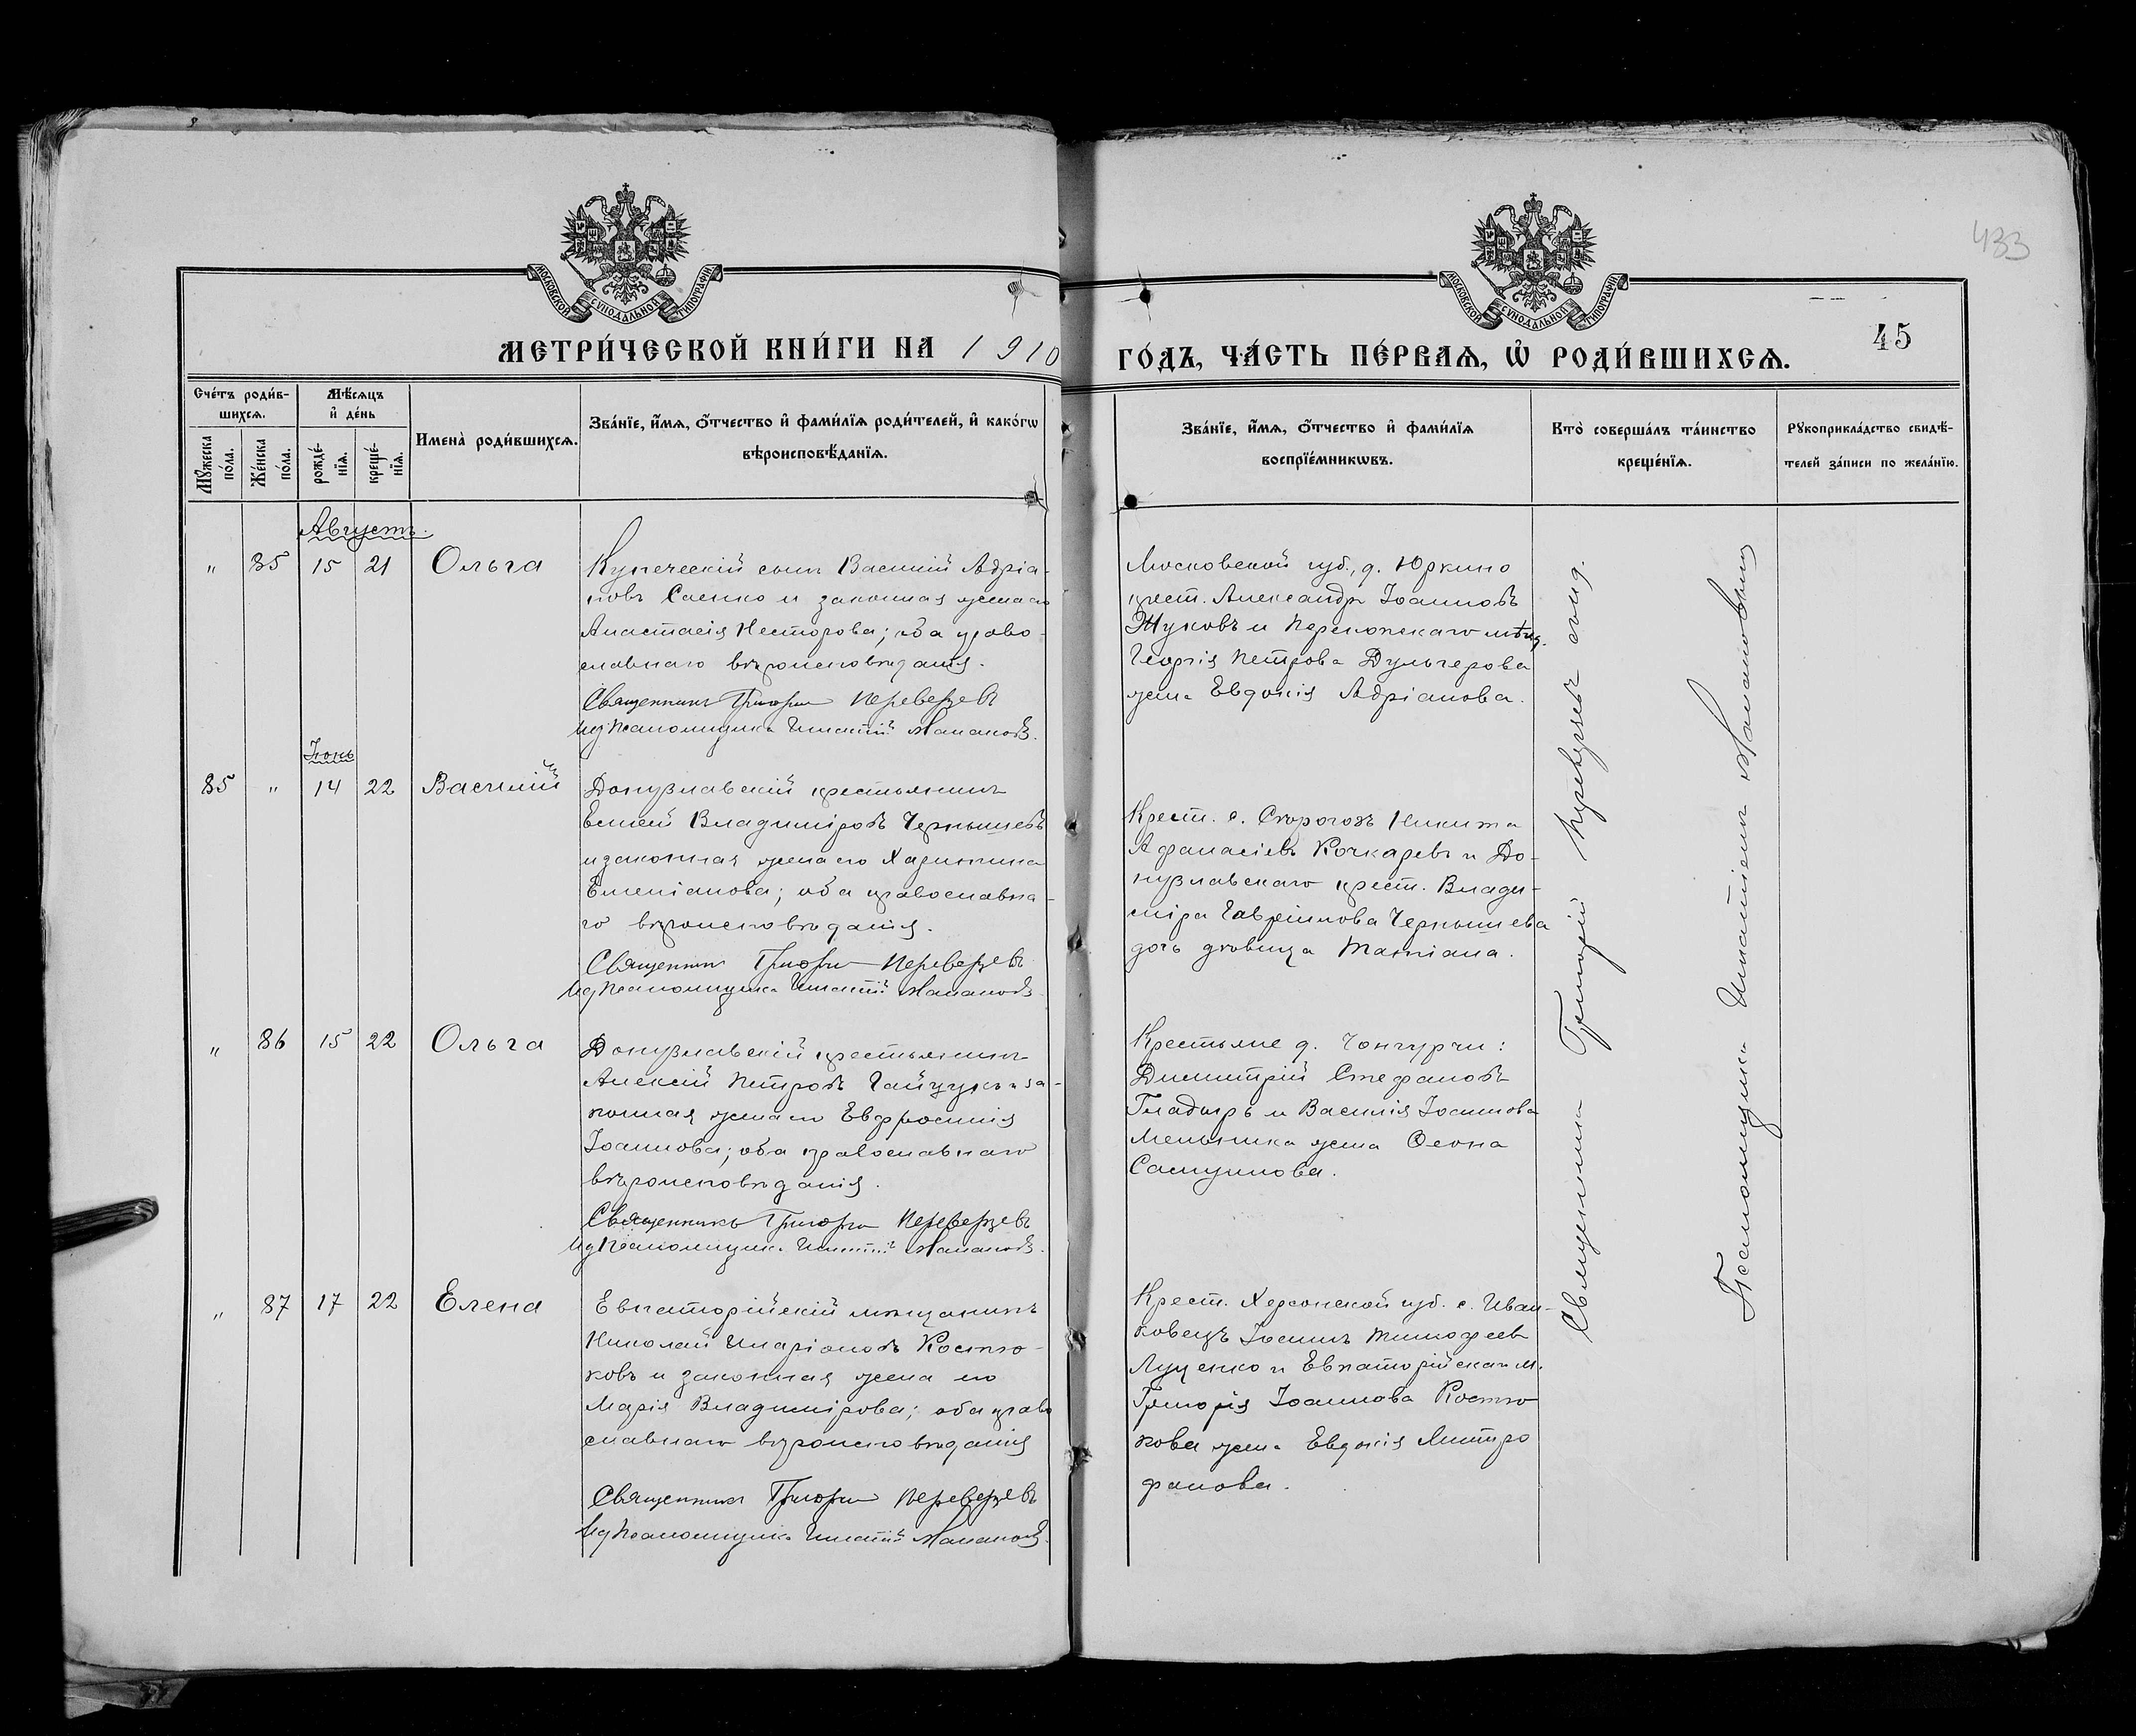 433
МОСКОВСКОЙ СѴНОДАЛЬНОЙ ТИПОГРАФІИ
МОСКОВСКОЙ СѴНОДАЛЬНОЙ ТИПОГРАФІИ
МЕТРИ́ЧЕСКОЙ КНИ́ГИ НА 1910
ГО́ДЪ, ЧА́СТЬ ПЕ́РВАѦ, Ѡ҆ РОДИ́ВШИХСѦ.
45
Сче́тъ роди́в-
шихсѧ.
Мѣ́сѧцъ
и҆ де́нь
Мꙋ́жеска
по́ла.
Же́нска
по́ла.
рожде́-
нїѧ.
креще́-
нїѧ.
Имена̀ роди́вшихсѧ.
Зва́нїе, и҆́мѧ, ѻ҆́тчество и҆ фами́лїѧ роди́телей, и҆ како́гѡ
вѣроисповѣ́данїѧ.
Зва́нїе, и҆́мѧ, ѻ҆́тчество и҆ фами́лїѧ
воспрїе́мникѡвъ.
Кто̀ соверша́лъ та́инство
креще́нїѧ.
Рꙋкоприкла́дство свидѣ́-
телей за́писи по жела́нїю.
Августъ.
" 85 15 21 Ольга
Купеческій сынъ Василій Адріа-
новъ Саенко и законная жена его
Анастасія Несторова; оба право-
славнаго вѣроисповѣданія.
Священникъ Григорій Переверзевъ
Ид Псаломщика Игнатій
Московской губ., д. Юркино
крест. Александръ Іоанновъ
Жуковъ и Перекопскаго мѣщ.
Георгія Петрова Дульгерова
жена Евдокія Адріанова.
Іюнь
85 " 14 22 Василій
Донузлавскій крестьянинъ
Владиміровъ Чернышевъ
и законная жена его Харитина
Емеліанова; оба православна-
го вѣроисповѣданія.
Священникъ Григорій Переверзевъ
Ид Псаломщика Игнатій
Крест. с. Никита
Афанасіевъ Кочкаревъ и До-
нузлавскаго крест. Влади-
міра Гавріилова Чернышева
дочь дѣвица Татіана.
" 86 15 22 Ольга
Донузлавскій крестьянинъ
Алексій Петровъ Гайдукъ и за-
конная жена его Евфросинія
Іоаннова; оба православнаго
вѣроисповѣданія.
Священникъ Григорій Переверзевъ
Ид Псаломщика Игнатій
Крестьяне д. Чонгурчи:
Димитрій Стефановъ
Гладырь и Василія Іоаннова
Мельника жена Ѳеона
" 87 17 22 Елена
Евпаторійскій мѣщанинъ
Николай Иларіоновъ Костю-
ковъ и законная жена его
Марія Владимірова; оба право
славнаго вѣроисповѣданія
Священникъ Григорій Переверзевъ
Ид Псаломщика Игнатій
Крест. Херсонской губ. с. Иван-
ковецъ Іоаннъ Тимофеев
Луценко и Евпаторійскаго м.
Григорія Іоаннова Костю
кова жена Евдокія Митро
фанова.
Священникъ Григорій Переверзевъ
Псаломщика Игнатіемъ